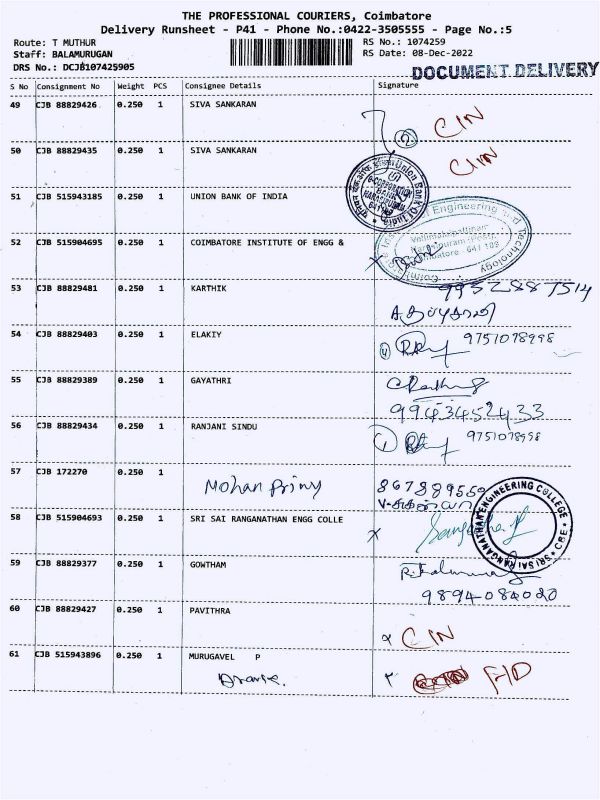 THE PROFESSIONAL COURIERS, Coimbatore
Delivery Runsheet - P41 - Phone No.:0422-3505555 - Page No.:5
Route: T MUTHUR RS No.: 1074259
Staff: BALAMURUGAN RS Date: 08-Dec-2022
DRS No.: DCJB107425905 DOCUMENT DELIVERY
S No Consignment No Weight PCS Consignee Details Signature
49 CJB 88829426 0.250 1 SIVA SANKARAN CIN
50 CJB 88829435 0.250 1 SIVA SANKARAN CIN
51 CJB 515943185 0.250 1 UNION BANK OF INDIA
Union Bank Of India
Engineering and Technology
52 CJB 515904695 0.250 1 COIMBATORE INSTITUTE OF ENGG &
53 CJB 88829481 0.250 1 KARTHIK
54 CJB 88829403 0.250 1 ELAKIY
9751078998
55 CJB 88829389 0.250 1 GAYATHRI
9943452433
56 CJB 88829434 0.250 1 RANJANI SINDU
9751078998
57 CJB 172270 0.250 1
Mohan Priny 867889559
58 CJB 515904693 0.250 1 SRI SAI RANGANATHAN ENGG COLLE
SRI SAI RANGANATHAN ENGINEERING COLLEGE CBE
59 CJB 88829377 0.250 1 GOWTHAM
9894084020
60 CJB 88829427 0.250 1 PAVITHRA
CIN
61 CJB 515943896 0.250 1 MURUGAVEL P